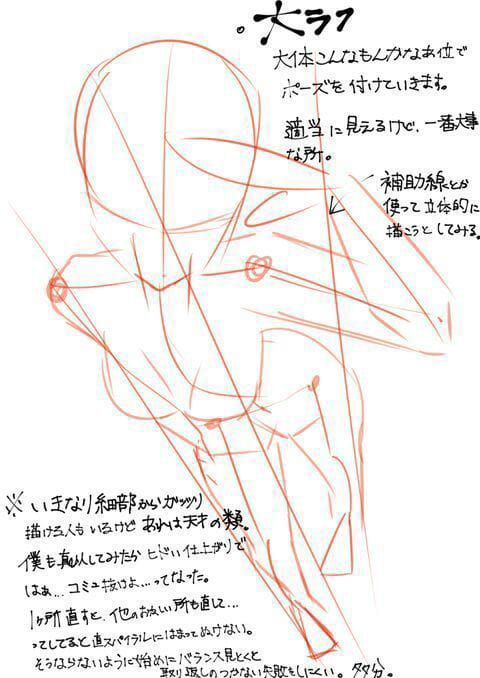 。大ラフ
大体こんなもんかなあ位で
ポーズを付けていきます。
適当に見えるけど、一番大事
な所。
補助線とか
使って立体的に
描こうとしてみる。
※いきなり細部からガッツリ
描ける人もいるけどあれは天才の類。
僕も真似してみたがヒドい仕上がりで
はぁ…コミュ抜けよ…ってなった。
1ヶ所直すと、他のおかしい所も直して…
ってしてると直スパイラルにはまってぬけない。
そうならないように始めにバランス見とくと
取り返しのつかない失敗もしにくい。多分。